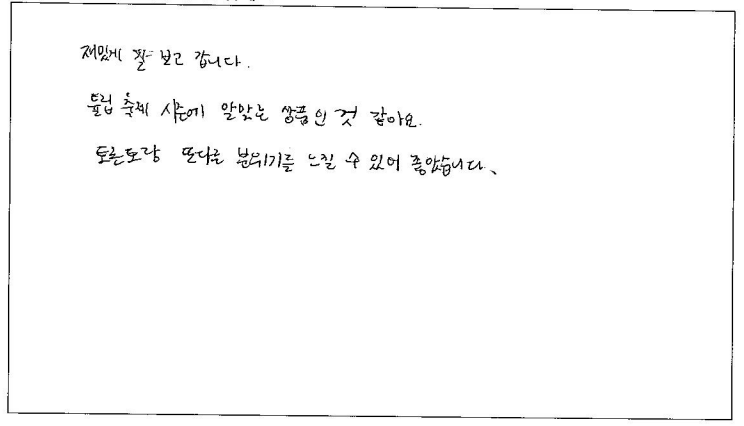 재밌게 잘 보고 갑니다.
튤립 축제 시즌에 알맞는 상품인 것 같아요.
토론토랑 또다른 분위기를 느낄 수 있어 좋았습니다.